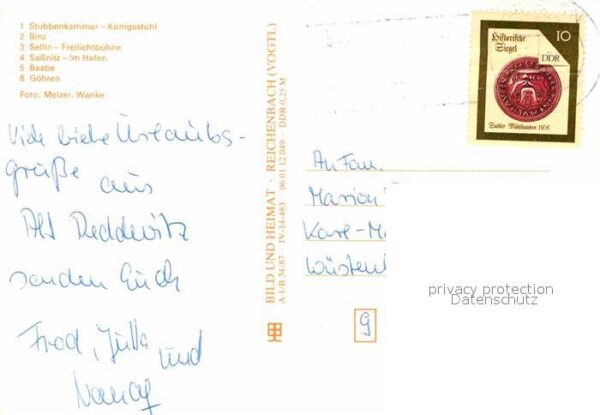 1 Stubbenkammer – Königsstuhl
2 Binz
3 Sellin – Freilichtbühne
4 Saßnitz – Im Hafen
5 Baabe
6 Göhren
Foto: Melzer, Wanke
Viele liebe Urlaubs-
grüße aus
Alt Reddewitz
senden Euch
Fred, Jutta
und
Nancy
BILD UND HEIMAT · REICHENBACH (VOGTL)
A 1/B 34/87 IV-14-483 06 01 12 049 DDR 0,25 M
Historische
Siegel
10
DDR
Sattler - Mühlhausen 1565
An Fam.
Marion
Karl-M
Wüsten
G
privacy protection
Datenschutz